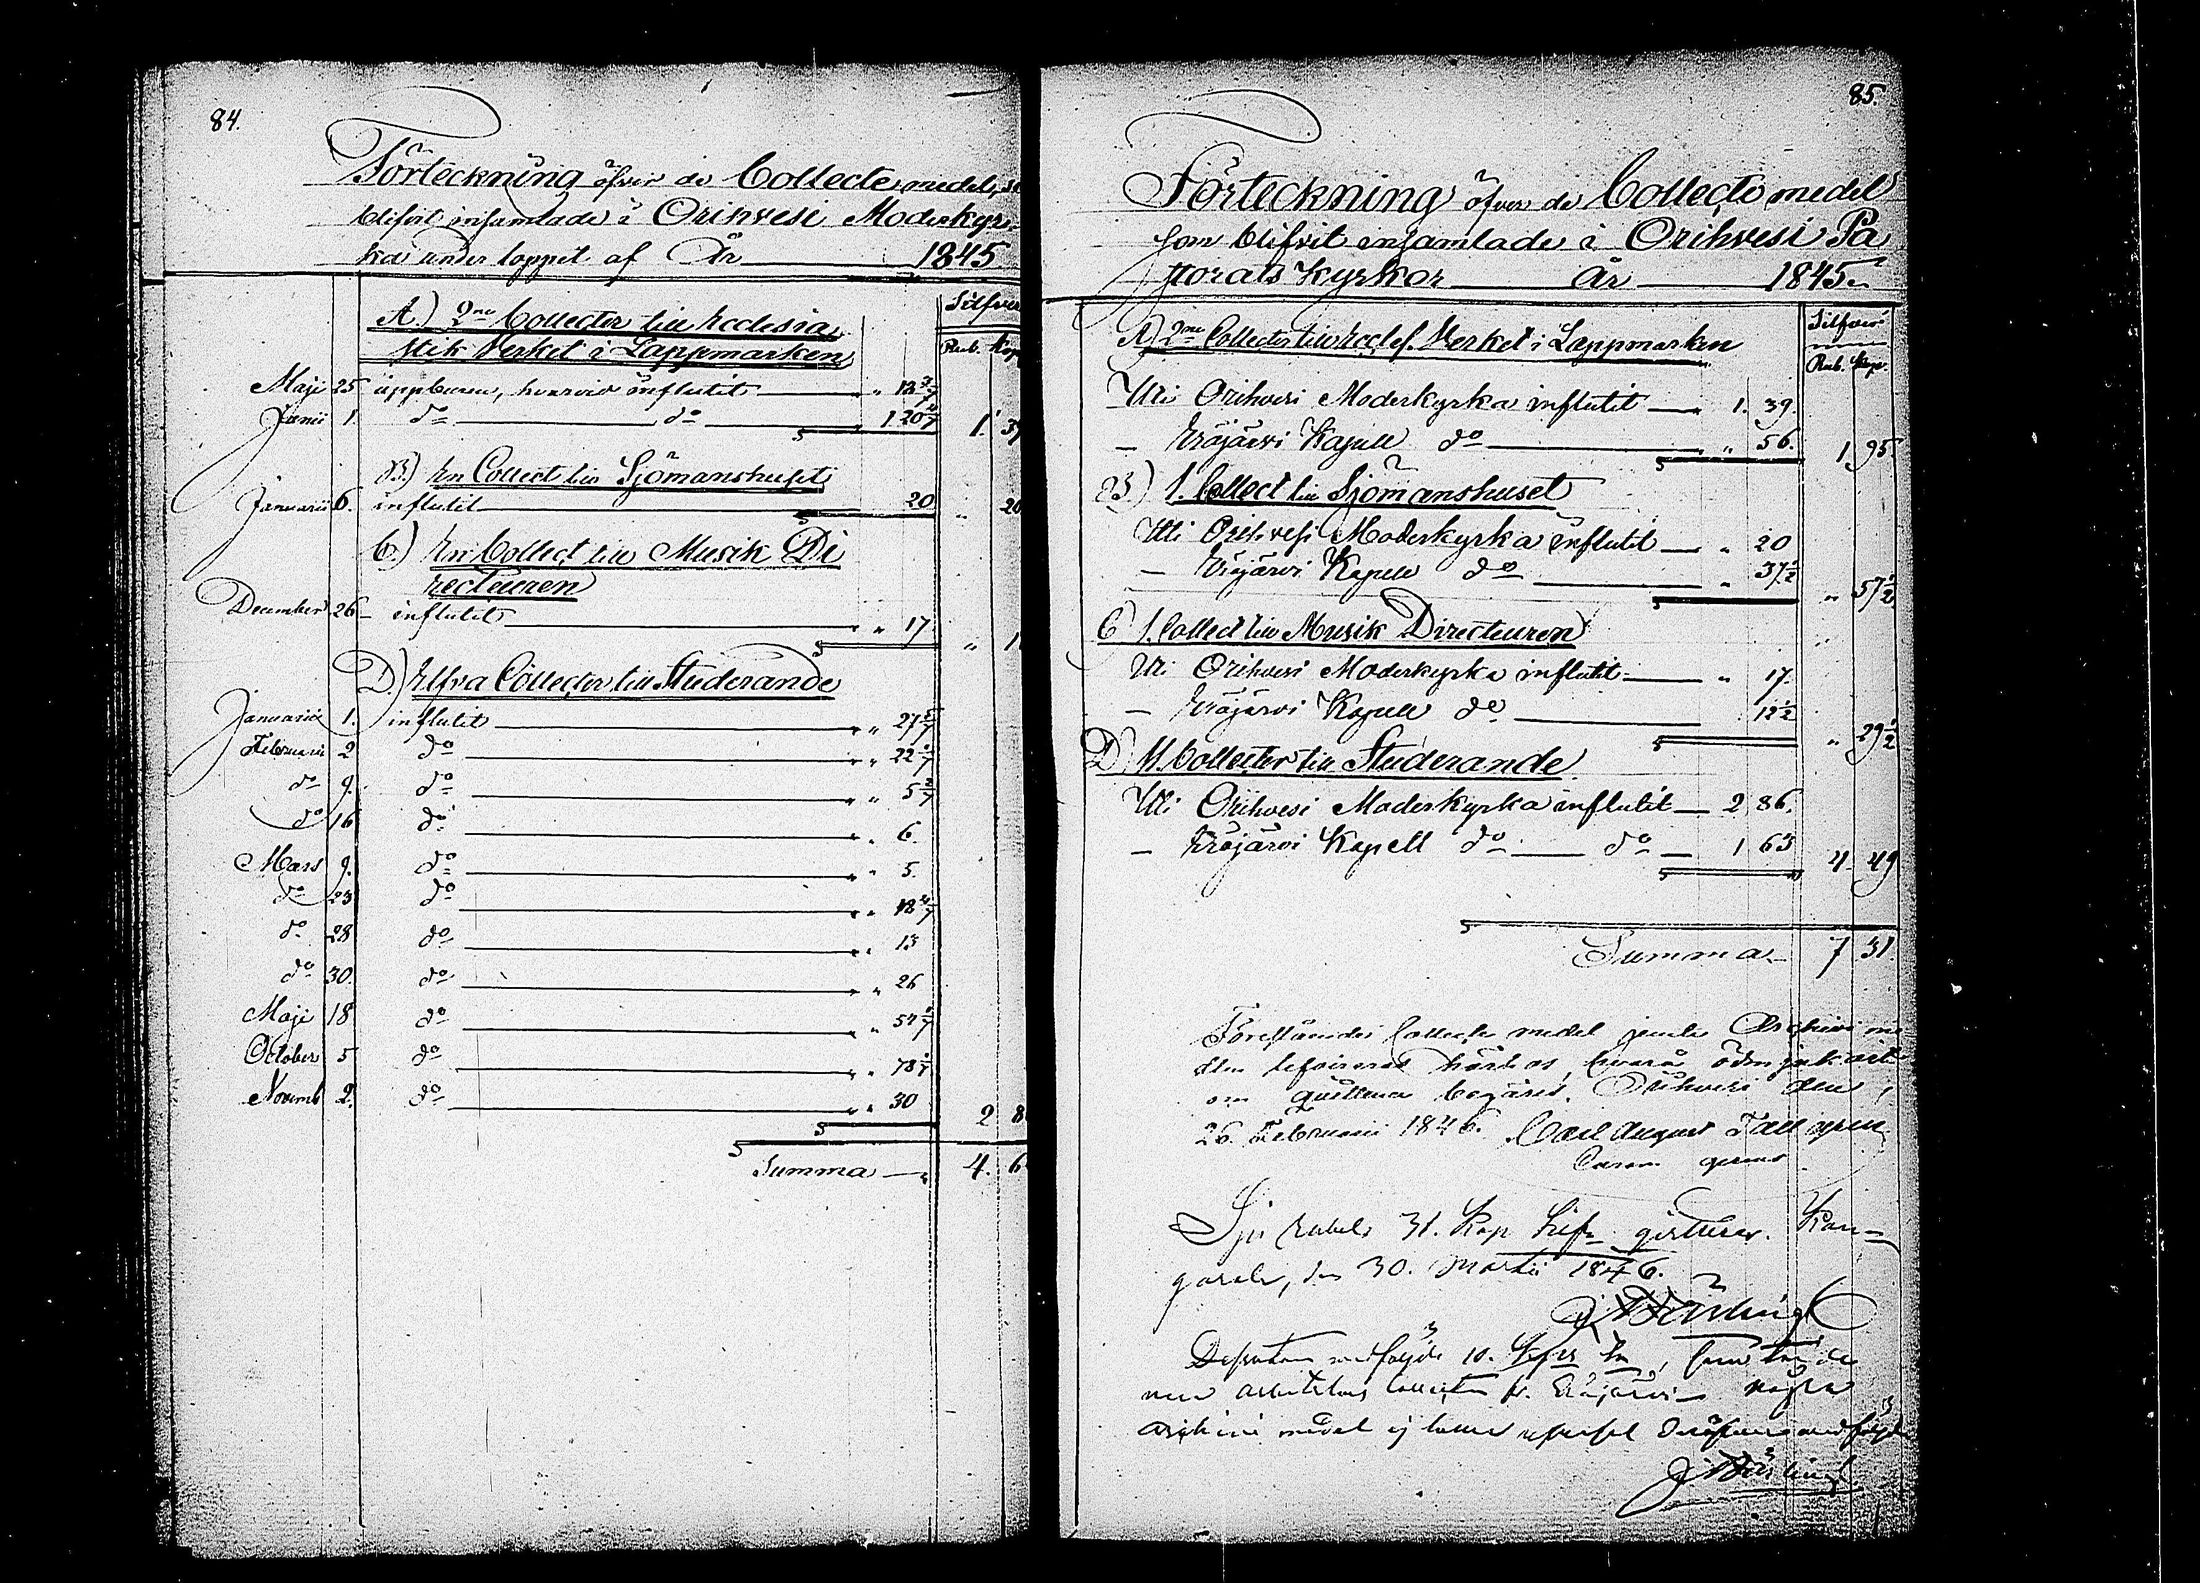 84.
Förteckning öfver de Collecte medel, so
blifvit insamlade i Orihvesi Moderkyr-
ka under loppet af År 1845
Silfver
Rub. Kop
A.) 2ne Collecter till Ecclesia
stik Verket i Lappmarken
Maji 25 uppburen, hvarvid influtit " 18 3/7
Junii 1. do do 1 20 4/7 1. 39
B.) En Collect till Sjömanshuset
Januarii 6. influtit 20 " 20
C.) En Collect till Musik Di
recteuren
December 26 influtit " " 17 " 1
D.) Elfva Collecter till Studerande
Januarii 1. influtit " " 27 5/7
Februarii 2 do " " 22 6/7
do 9. do " " 5 2/7
do 16 do " " 6.
Mars 9. do " " 5.
do 23 do " " 18 4/7
do 28 do " " 13
do 30. do " " 26
Maji 18 do " 57 1/7
October 5 do " " 78 1/7
Novemb 2. do " " 30 2 8
Summa 4. 6
85.
Förteckning öfver de Collecte medel
som blifvit insamlade i Orihvesi Pa
storats Kyrkor År 1845.
Silfver
Rub. Kop.
A) 2ne Collecter till Eccles. Verket i Lappmarken
Uti Orihvesi Moderkyrka influtit " 1. 39.
— Eräjärvi Kapell do " " 56. 1 95
B) 1. Collect till Sjömanshuset
Uti Orihvesi Moderkyrka influtit " 20
— Eräjärvi Kapell do " 37 1/2 " 57 1/2
C) 1. Collect till Musik Directeuren
Uti Orihvesi Moderkyrka influtit " 17.
— Eräjärvi Kapell do 12 1/2 " 29 1/2
D) 11. Collecter till Studerande
Uti Orihvesi Moderkyrka influtit 2 86.
— Eräjärvi Kapell do do 1 63 4 49
Summa 7 31.
Förestående Collecte medel jemte Archivi me
dlen hörhos, ödmjukast
om begäres. Orihvesi den
26 Februarii 1846. Carl August
Curam gerens
Sju rubel 31. Kop Silfr qvitteras. Kan-
gasala, den 30. Martii 1846.
10.
Collecten fr. Eräjärvi några
medel ej